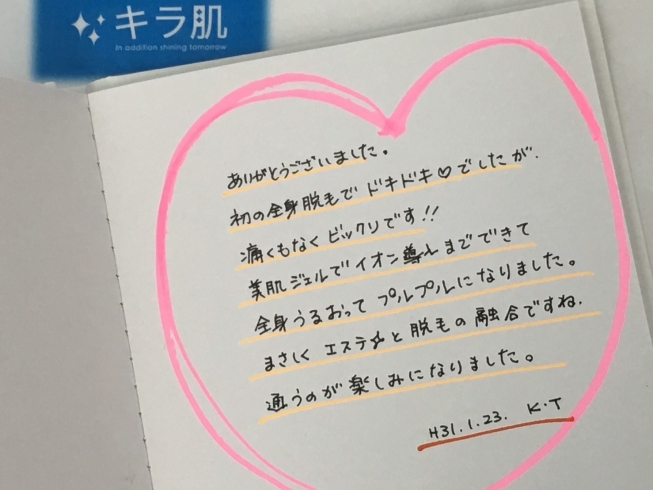 キラ肌
In addition shining tomorrow
ありがとうございました。
初の全身脱毛でドキドキ♡でしたが、
痛くもなくビックリです!!
美肌ジェルでイオン導入までできて
全身うるおってプルプルになりました。
まさしくエステ☆と脱毛の融合ですね。
通うのが楽しみになりました。
H31.1.23. K.T